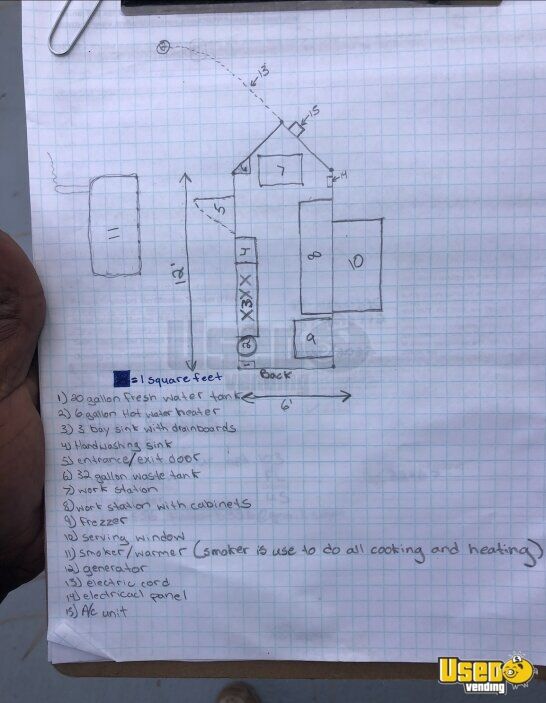 12
13
15
6
7
14
5
11
12'
4
8
10
X3XX
2
9
1
Back
= 1 square feet
6'
1) 20 gallon fresh water tank
2) 6 gallon Hot water heater
3) 3 bay sink with drainboards
4) Handwashing sink
5) entrance/exit door
6) 32 gallon waste tank
7) work station
8) work station with cabinets
9) Frezzer
10) serving window
11) smoker/warmer (smoker is use to do all cooking and heating)
12) generator
13) electric cord
14) electricacl panel
15) A/c unit
USED
vending